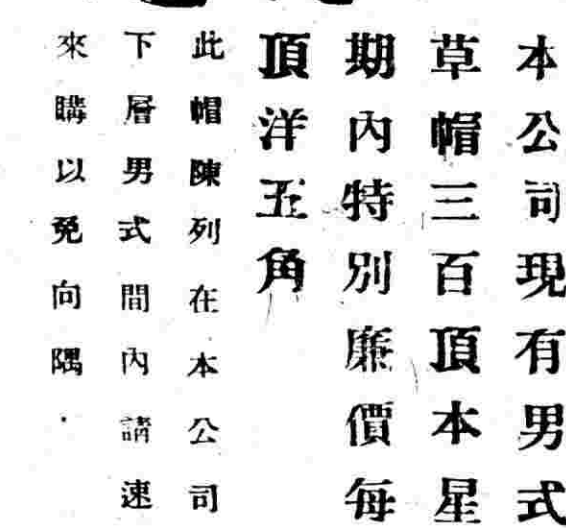 本公司現有男式
草帽三百頂本星
期內特別廉價每
頂洋五角
此帽陳列在本公司
下層男式間內請速
來購以免向隅.